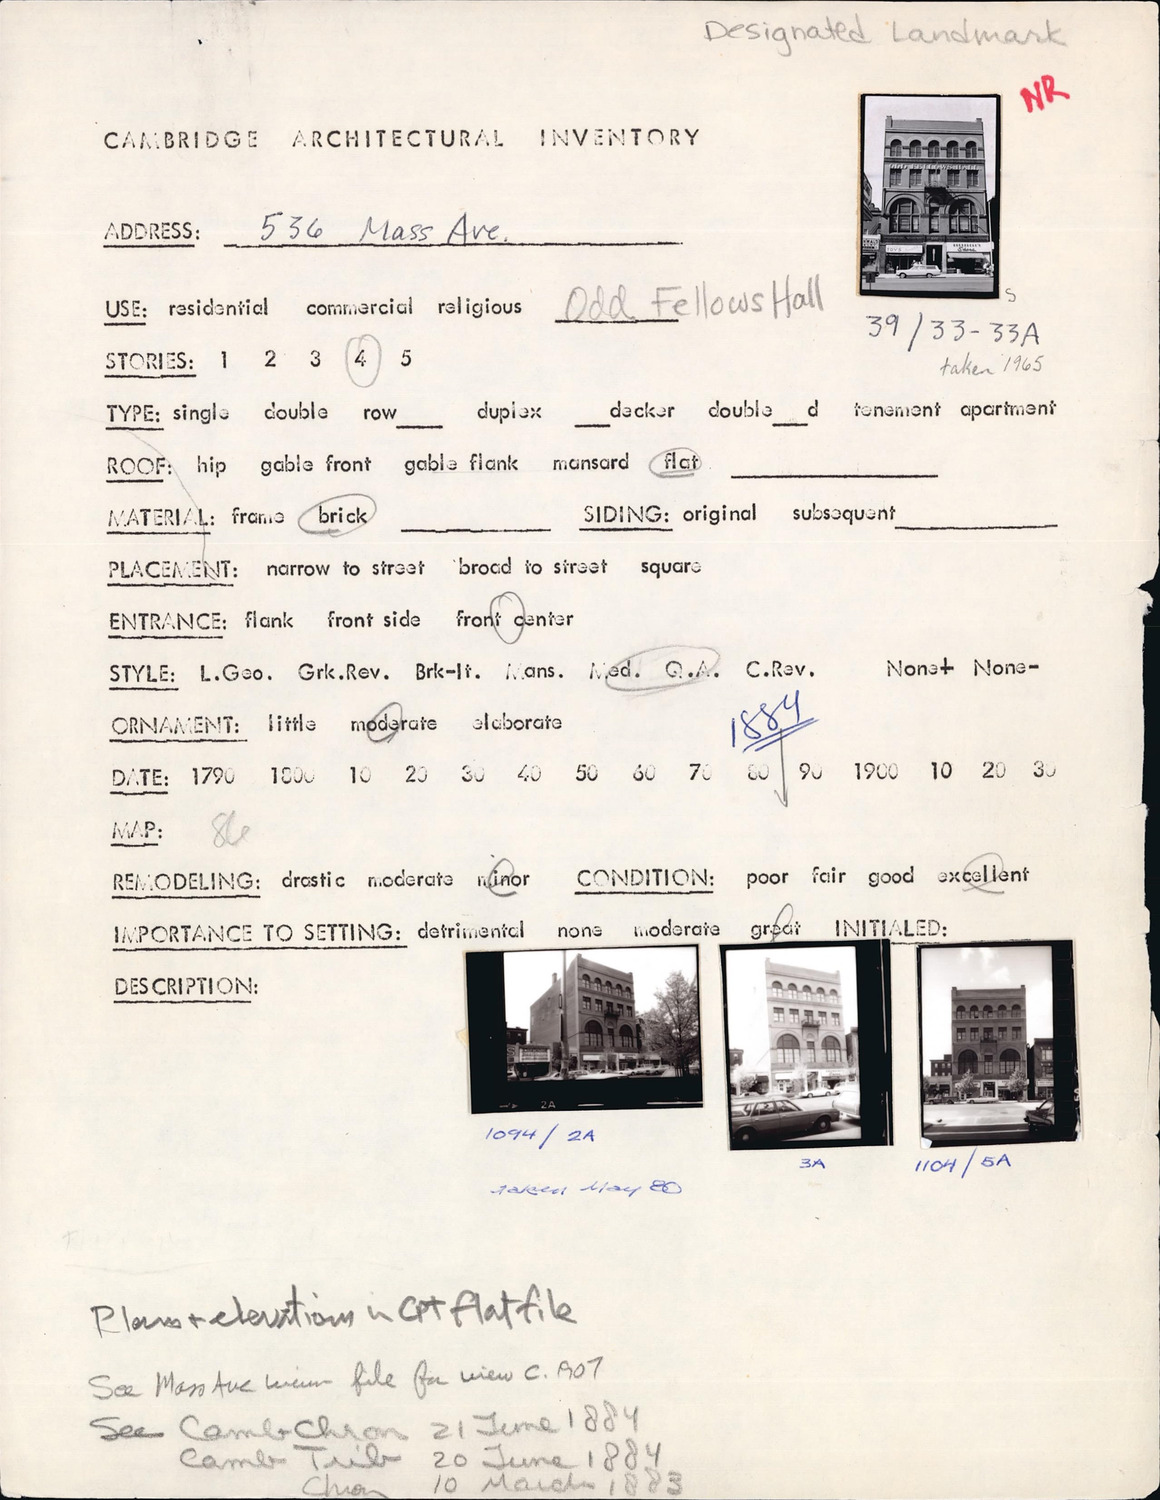 Designated Landmark
NR
CAMBRIDGE ARCHITECTURAL INVENTORY
ODD FELLOWS HALL
ADDRESS: 536 Mass Ave.
USE: residential commercial religious Odd Fellows Hall
S
39/33-33A
taken 1965
STORIES: 1 2 3 4 5
TYPE: single double row___ duplex ___decker double___d tenement apartment
ROOF: hip gable front gable flank mansard flat
MATERIAL: frame brick SIDING: original subsequent
PLACEMENT: narrow to street broad to street square
ENTRANCE: flank front side front center
STYLE: L.Geo. Grk.Rev. Brk-It. Mans. Med. Q.A. C.Rev. None+ None-
ORNAMENT: little moderate elaborate
1884
DATE: 1790 1800 10 20 30 40 50 60 70 80 90 1900 10 20 30
MAP: 86
REMODELING: drastic moderate minor CONDITION: poor fair good excellent
IMPORTANCE TO SETTING: detrimental none moderate great INITIALED:
DESCRIPTION:
2A
1094/2A
3A
1104/5A
taken May 80
Plans + elevations in CPT flat file
See Mass Ave view file for view c. 1907
See Camb Chron 21 June 1884
Camb Trib 20 June 1884
Chron 10 March 1883